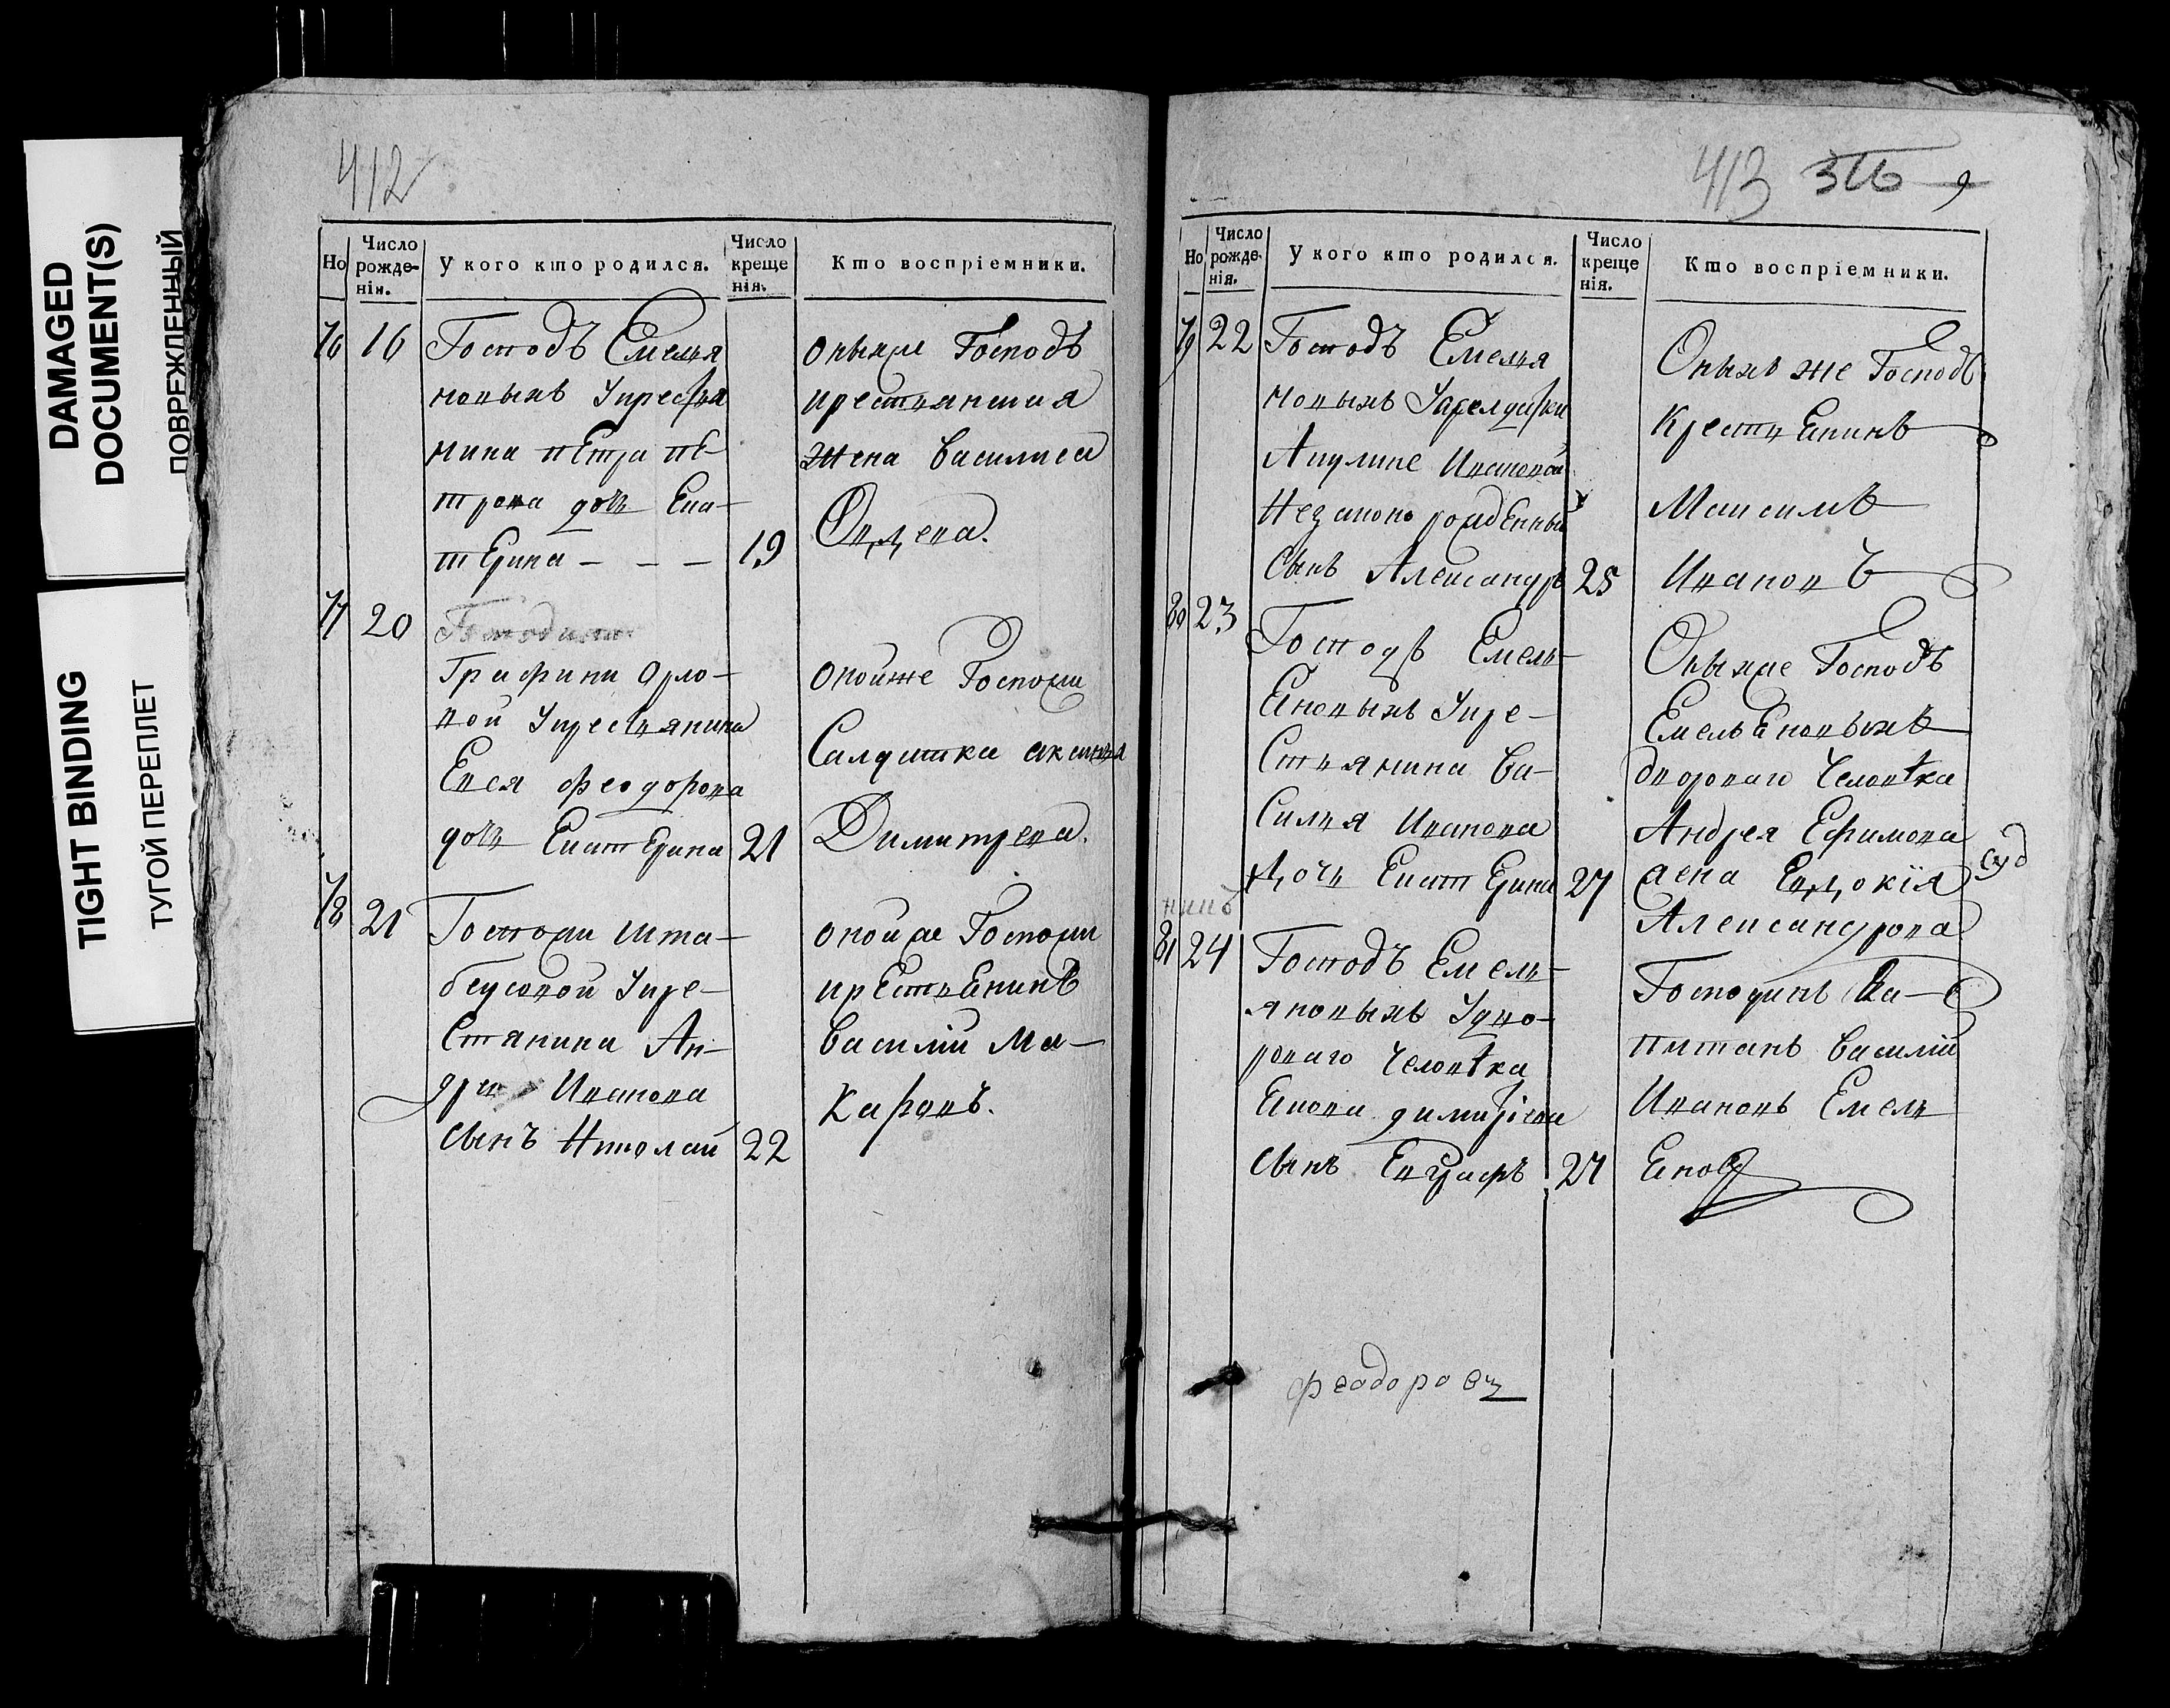 DAMAGED
DOCUMENT(S)
ПОВРЕЖДЕННЫЙ
TIGHT BINDING
ТУГОЙ ПЕРЕПЛЕТ
412
Но
Число рожде-нія.
У кого кто родился.
Число креще нія.
Кто воспріемники.
76 16 Господъ Емелья
новыхъ Укрестья
нина пЕтра пЕ
трова дочь Ека-
тЕрина - - - 19
оныхже Господъ
крестьянская
жена василиса
Авдеева.
77 20
Графини Орло-
вой Укрестьянина
Евсея феодорова
дочь ЕкатЕрина 21
онойже Госпожи
Салдатка аксинья
Димитрева.
78 21 Госпожи шта-
беусовой Укре-
Стянина Ан-
дрея Иванова
сынъ Николай 22
онойже Госпожи
крЕстьЕнинъ
василій Ма-
Каровъ.
413 316 9
Но
Число рожде-нія.
У кого кто родился.
Число креще нія.
Кто воспріемники.
79 22 Господъ Емелья
новыхъ
Акулине Ивановой
Незаконо рождЕнный
Сынъ Александръ 25
Оныхъ же Господъ
КрестьЕнинъ
Максимъ
Ивановъ
80 23
Господъ Емель-
Еновыхъ Укре-
Стьянина ва-
Силья Иванова
Дочь ЕкатЕрина 27
Оныхже Господъ
ЕмельЕновыхъ
дворонаго Человѣка
Андрея Ефимова
жена Евдокія
Александрова
81 24 Господъ Емель-
яновыхъ Удво-
роваго Человѣка
Якова димитріева
сынъ Евграфъ 27
Господинъ Ка-
питанъ василій
Ивановъ Емель
Еновъ
феодоровъ